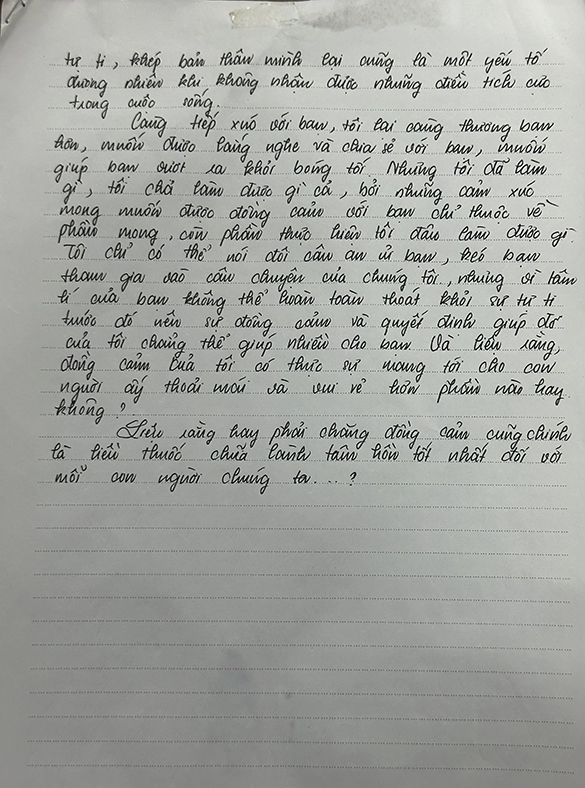 tự ti, khép bản thân mình lại cũng là một yếu tố
đương nhiên khi không nhận được những điều tích cực
trong cuộc sống.
Càng tiếp xúc với bạn, tôi lại càng thương bạn
hơn, muốn được lắng nghe và chia sẻ với bạn, muốn
giúp bạn vượt ra khỏi bóng tối. Nhưng tôi đã làm
gì, tôi chả làm được gì cả, bởi những cảm xúc
mong muốn được đồng cảm với bạn chỉ thuộc về
phần mong, còn phần thực hiện tôi đâu làm được gì.
Tôi chỉ có thể nói đôi câu an ủi bạn, kéo bạn
tham gia vào câu chuyện của chúng tôi, nhưng vì tâm
lí của bạn không thể hoàn toàn thoát khỏi sự tự ti
trước đó nên sự đồng cảm và quyết định giúp đỡ
của tôi chẳng thể giúp nhiều cho bạn. Và liệu rằng,
đồng cảm của tôi có thực sự mang tới cho con
người ấy thoải mái và vui vẻ hơn phần nào hay
không?
Liệu rằng hay phải chăng đồng cảm cũng chính
là liều thuốc chữa lành tâm hồn tốt nhất đối với
mỗi con người chúng ta...?